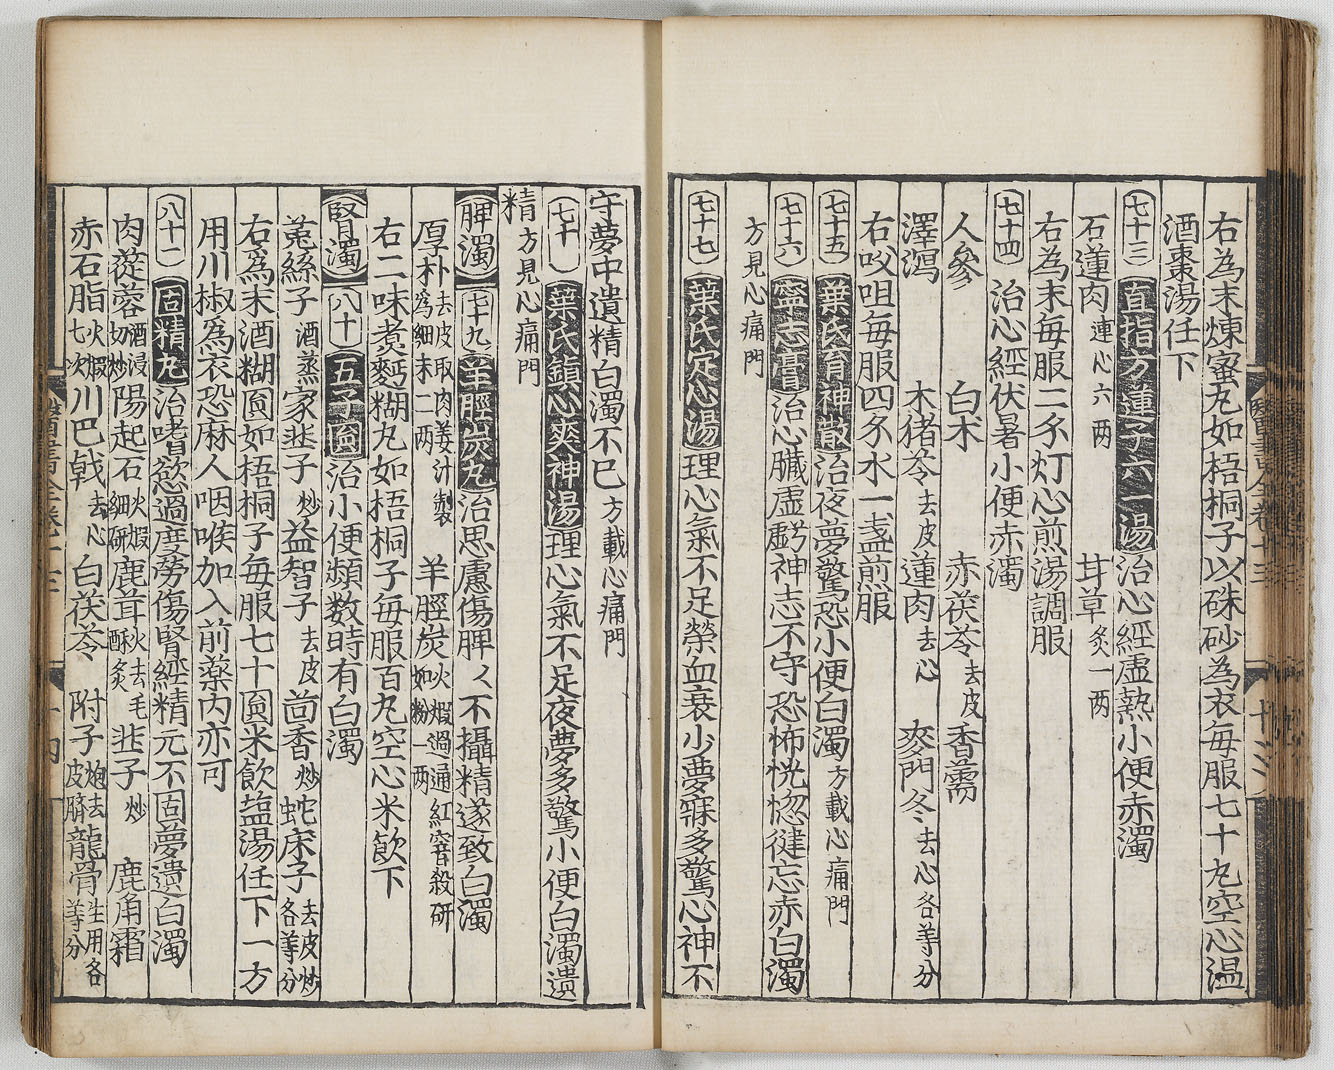 右為末煉蜜丸如梧桐子以硃砂為衣每服七十丸空心温
酒棗湯任下
七十三 直指方蓮子六一湯 治心經虛熱小便赤濁
石蓮肉 連心六两 甘草 炙一两
右為末每服二亽灯心煎湯調服
七十四 治心經伏暑小便赤濁
人參 白术 赤茯苓 去皮 香薷
澤瀉 木猪苓 去皮 蓮肉 去心 麥門冬 去心各等分
右㕮咀每服四亽水一盞煎服
七十五 葉氏育神散 治夜夢驚恐小便白濁 方載心痛門
七十六 寧志膏 治心臟虛虧神志不守恐怖恍惚健忘赤白濁
方見心痛門
七十七 葉氏定心湯 理心氣不足榮血衰少夢寐多驚心神不
守夢中遺精白濁不已 方載心痛門
葉氏鎮心爽神湯 理心氣不足夜夢多驚小便白濁遺
精 方見心痛門
脾濁 七十九 羊脛炭丸 治思慮傷脾〻不攝精遂致白濁
厚朴 去皮取肉姜汁製為細末二两 羊脛炭 火煅過通紅窨殺研如粉一两
右二味煮麪糊丸如梧桐子每服百丸空心米飲下
腎濁 八十 五子圓 治小便頻数時有白濁
菟絲子 酒蒸 家韭子 炒 益智子 去皮 茴香 炒 蛇床子 去皮炒各等分
右為末酒糊圓如梧桐子每服七十圓米飲盐湯任下一方
用川椒為衣恐麻人咽喉加入前藥内亦可
八十一 固精丸 治嗜慾過度勞傷腎經精元不固夢遺白濁
肉蓯蓉 酒浸切炒 陽起石 火煅細研 鹿茸 火去毛酥炙 韭子 炒 鹿角霜
赤石脂 火煅七次 川巴戟 去心 白茯苓 附子 炮去皮臍 龍骨 生用各等分